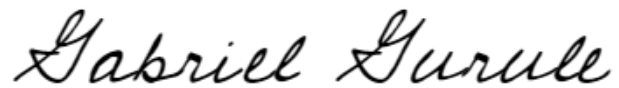 Gabriel Gurule